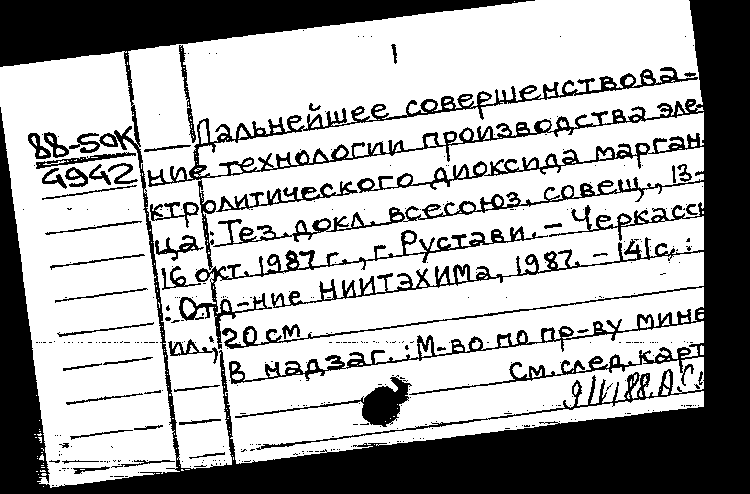 1
88-50К
4942
Дальнейшее совершенствова-
ние технологии производства эле-
ктролитического диоксида марган
ца : Тез. докл. всесоюз. совещ., 13-
16 окт. 1987 г., г. Рустави. – Черкассы
: Отд-ние НИИТЭХИМа, 1987. – 141 с. :
ил. ; 20 см.
В надзаг. : М-во по пр-ву мине
См. след. карт